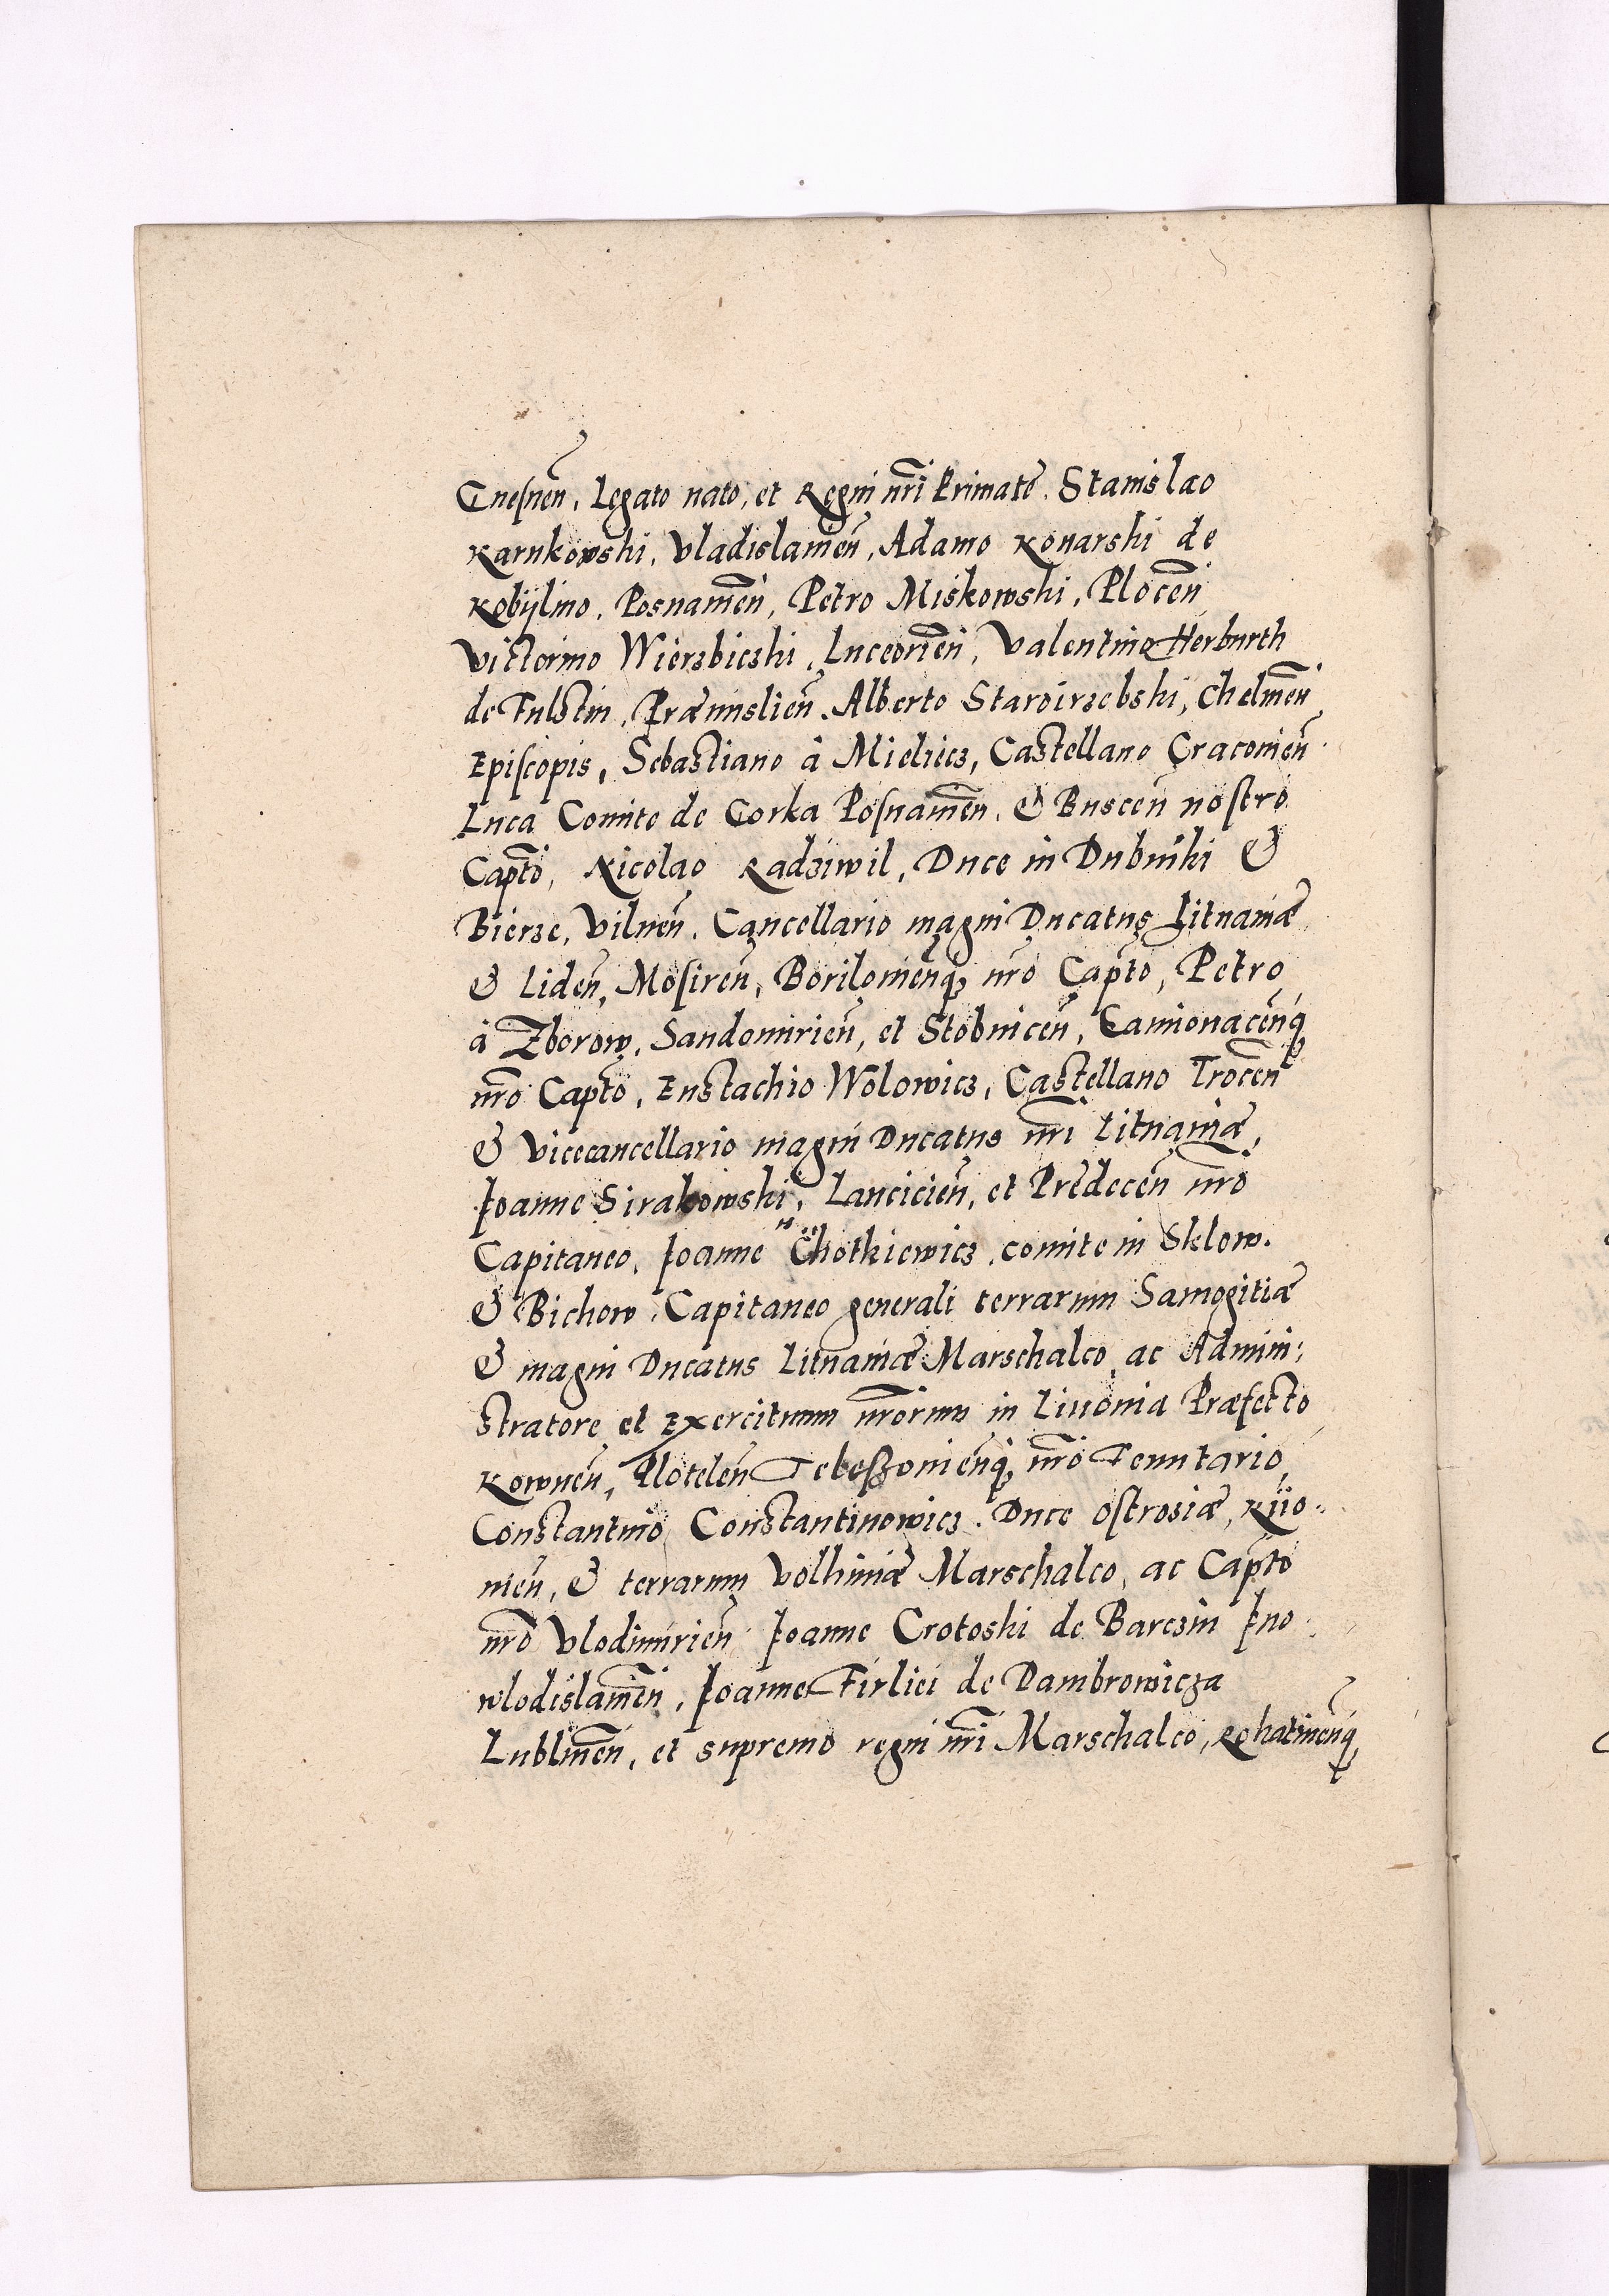 Gnesneñ. Legato nato, et Regni nri̅ Primate. Stanislao
Karnkowski, Vladislauień, Adamo Konarski de
Kobÿlino, Posnanień, Petro Miskowski, Ploceń
Victorino Wierzbiczki, Luceorień, Valentino Herburth
de Fulstin, Præmislień. Alberto Staroirzebski, Chelmeń
Episcopis, Sebastiano à Mieliecz, Castellano Cracouień
Luca Comite de Gorka Posnanień. & Busceń nostro
Capto̅, Nicolao Radziwil, Duce in Dubinki &
Bierze, Vilneń. Cancellario magni Ducatus Lituaniæ
& Lideń, Mosireń, Borisouienq₃ nro̅ Capto̅, Petro
à Zborow, Sandomirień, et Stobniceń, Camionacenq₃
nro̅ Capto̅, Eustachio Wolowicz, Castellano Troceń
& Vicecancellario magni Ducatus nri̅ Lituaniæ,
Joanne Sirakowski, Lancicień, et Predeceń nro̅
Capitaneo, Joanne Chotkiewicz, comite in Sklow.
& Bichow, Capitaneo generali terrarum Samogitiæ
& magni Ducatus Lituaniæ Marschalco, ac Admini:
stratore et Exercituum nro̅rum in Liuonia Præfecto
Kowneń, Ploteleń Teleszouienq₃ nro̅ Tenutario,
Constantino Constantinowicz. Duce Ostrosiæ, Kiio:
uień, & terrarum Volhiniæ Marschalco, ac Capto̅
nro̅ Vlodimirień Joanne Crotoski de Barczin Jno:
wlodislauień, Joanne Firliei de Dambrowicza
Lublineń, et supremo regni nri̅ Marschalco, Rohatinenq₃